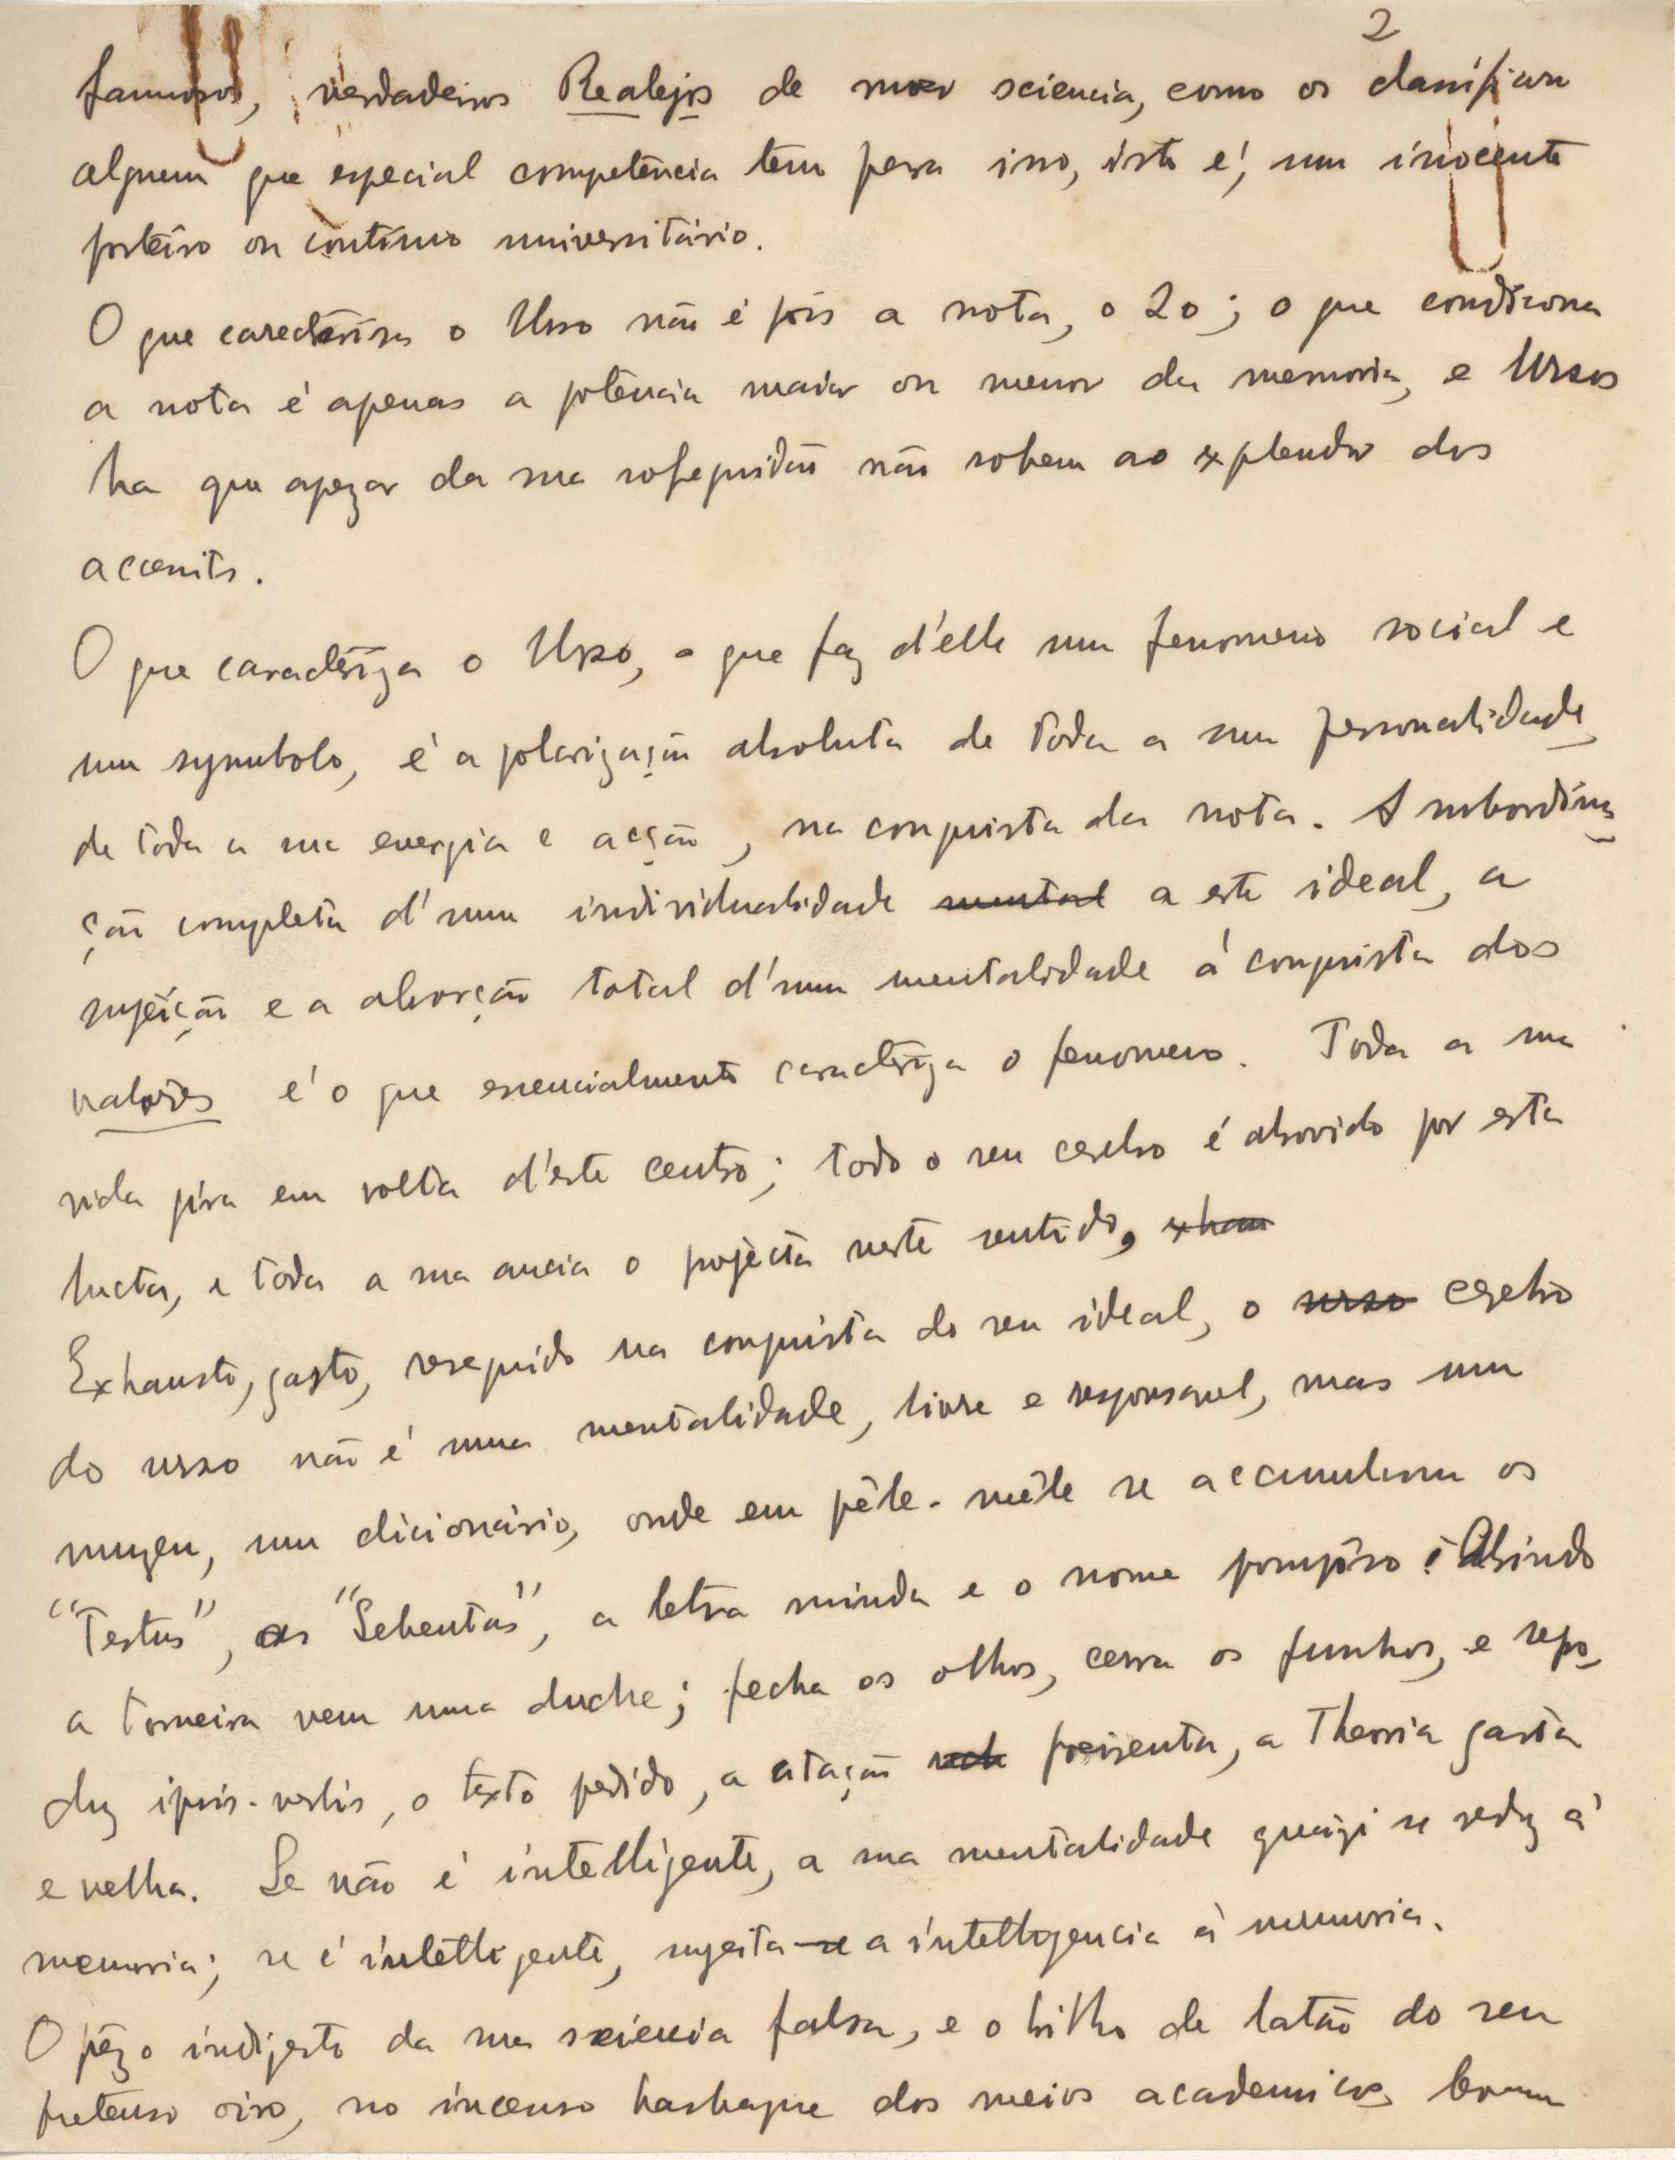 2
famosos, verdadeiros Realejos de moer sciencia, como os classificou
alguem que especial competência tem para isso, isto é, um inocente
porteiro ou contínuo universitário.
O que caracterisa o Urso não é pois a nota, o 20; o que condiciona
a nota é apenas a potencia maior ou menor da memoria, e Ursos
ha que apezar da sua sofreguidão não sobem ao explendor dos
accessits.
O que caracteriza o Urso, o que faz d'elle um fenomeno social e
um symbolo, é a polarização absoluta de toda a sua personalidade,
de toda a sua energia e acção, na conquista da nota. A subordina-
ção completa d'uma individualidade mental a este ideal, a
sujeição e a absorção total d'uma mentalidade á conquista dos
valores é o que essencialmente caracteriza o fenomeno. Toda a sua
vida gira em volta d'este centro; todo o seu cerebro é absorvido por esta
lucta, e toda a sua ancia o projecta neste sentido, exhau
Exhausto, gasto, resequido na conquista do seu ideal, o urso cerebro
do urso não é uma mentalidade, livre e responsavel, mas um
muzeu, um dicionário, onde em pêle-mêle se accumulam os
"Textus", as "Sebentas", a letra miuda e o nome pomposo. Abrindo
a torneira vem uma duche; fecha os olhos, cerra os punhos, e repro-
duz ipsis-verbis, o texto pedido, a citação, a Theoria gasta
e velha. Se não é intelligente, a sua mentalidade quázi se reduz á
memoria; se é intelligente, sujeita-se a intelligencia á memoria.
O pêzo indigesto da sua sciencia falsa, e o brilho de latão do seu
pretenso oiro, no incenso dos meios academicos,